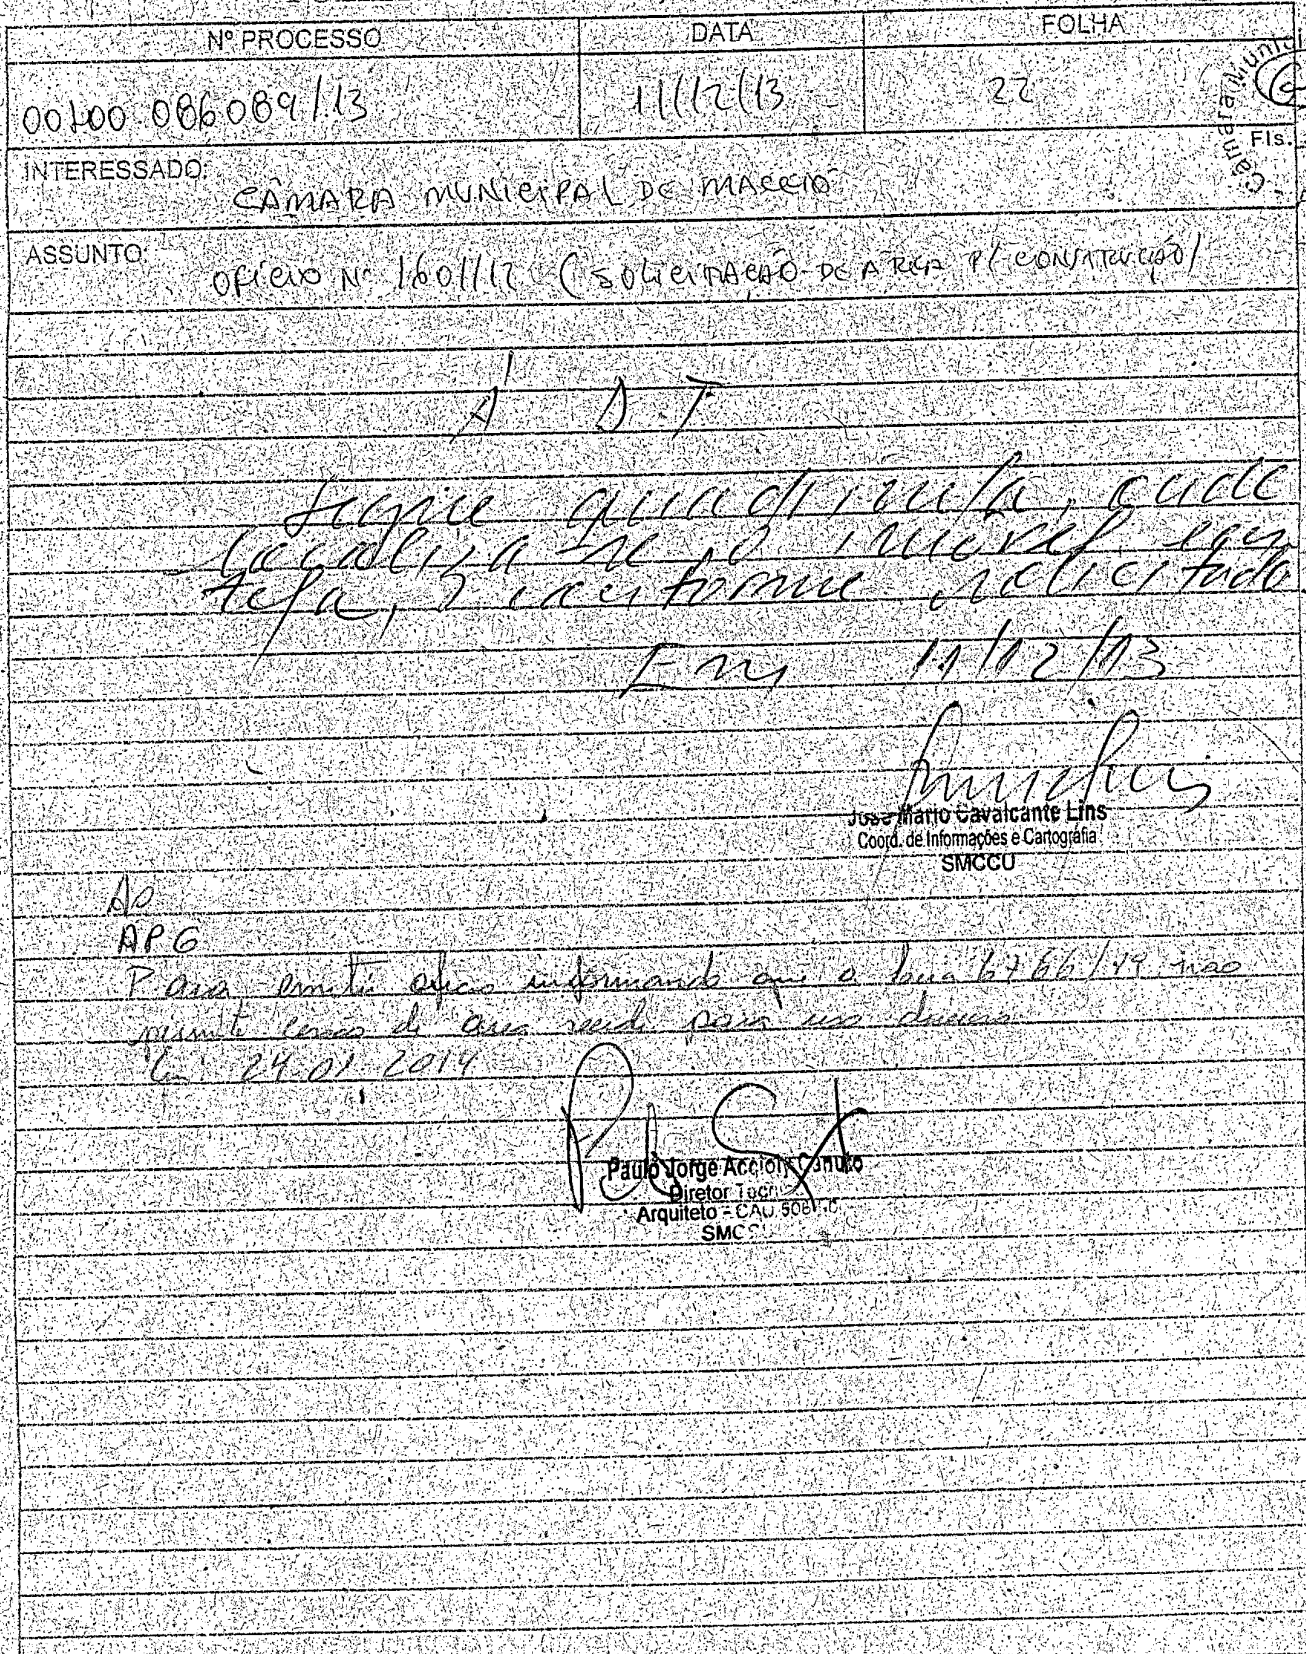 Nº PROCESSO DATA FOLHA
00100.086089/13 11/12/13 22
Câmara Munici
Fls.
INTERESSADO: CÂMARA MUNICIPAL DE MACEIÓ
ASSUNTO: OFICIO Nº 1601/12 (SOLICITAÇÃO DE AREA P/ CONSTRUÇÃO)
À D.T
Segue quadricula, onde
localiza-se o imóvel em
tela, conforme solicitado
Em 11/12/13
José Mario Cavalcante Lins
Coord. de Informações e Cartografia
SMCCU
Ao
APG
Para emitir oficio informando que a Lei 6766/79 não
permite cessão de area verde para uso diverso
Em 24.01.2014
Paulo Jorge Accioly Canuto
Diretor
Arquiteto - CAU